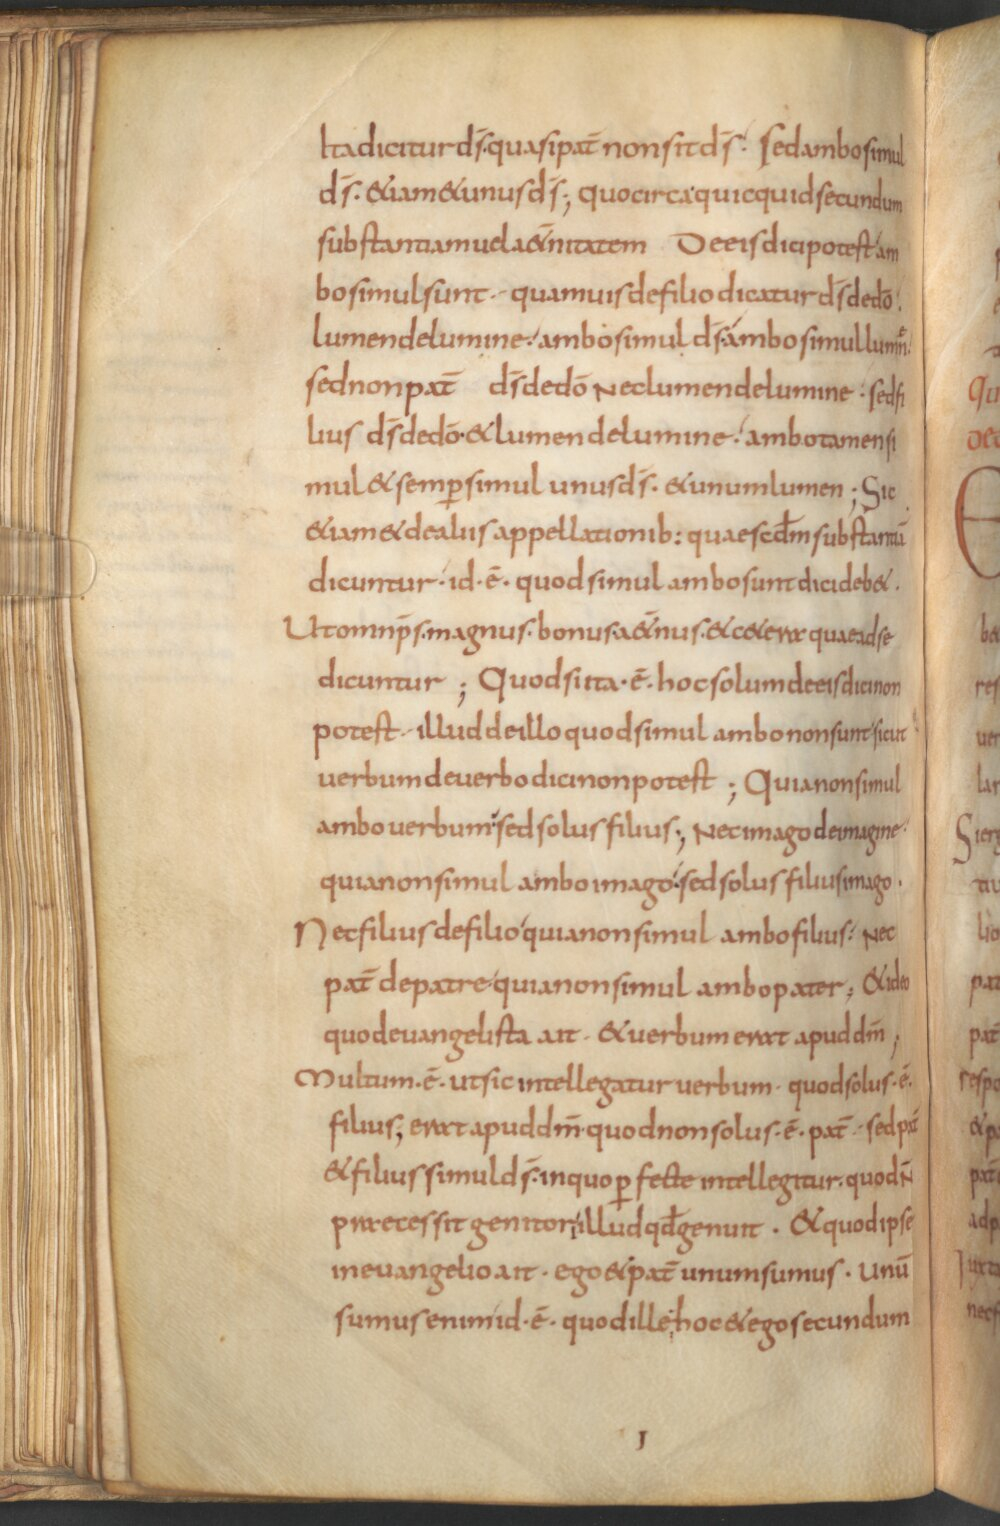 lta dicitur ds̄. quasi pat̄ non sit ds̄. Sed ambo simul
ds̄. &iam & unus ds̄; quocirca quicquid secundum
substantiam uel a&̄nitatem De eis dici potest am
bo simul sunt. quamuis de filio dicatur ds̄ de dō.
lumen de lumine. ambo simul ds̄. ambo simul lumn̄.
sed non pat̄ ds̄ de dō Nec lumen de lumine. sed fi
lius ds̄ de dō. & lumen de lumine. ambo tamen si
mul & semp̄ simul unus ds̄. & unum lumen; Sic
&iam & de aliis appellationib: quae scdm̄ substantiā
dicuntur. id. ē. quod simul ambo sunt dici deb&.
Ut omnip̄s. magnus. bonus. a&̄nus. & c&era quae ad se
dicuntur; Quod si ita. ē. hoc solum de eis dici non
potest. illud de illo quod simul ambo non sunt sicut
uerbum de uerbo dici non potest; Quia non simul
ambo uerbum. sed solus filius; Nec imago de imagine.
quia non simul ambo imago. sed solus filius imago.
Nec filius de filio quia non simul ambo filius. Nec
pat̄ de patre quia non simul ambo pater; & ideo
quod euangelista ait. & uerbum erat apud dm̄;
Multum. ē. ut sic intellegatur uerbum. quod solus. ē.
filius; erat apud dm̄. quod non solus. ē. pat̄. sed pat̄
& filius simul ds̄. in quo p̄fecte intellegitur. quod n̄
praecessit genitor illud qd̄ genuit. & quod ipse
in euangelio ait. ego & pat̄ unum sumus. Unū
sumus enim id. ē. quod ille hoc & ego secundum
I